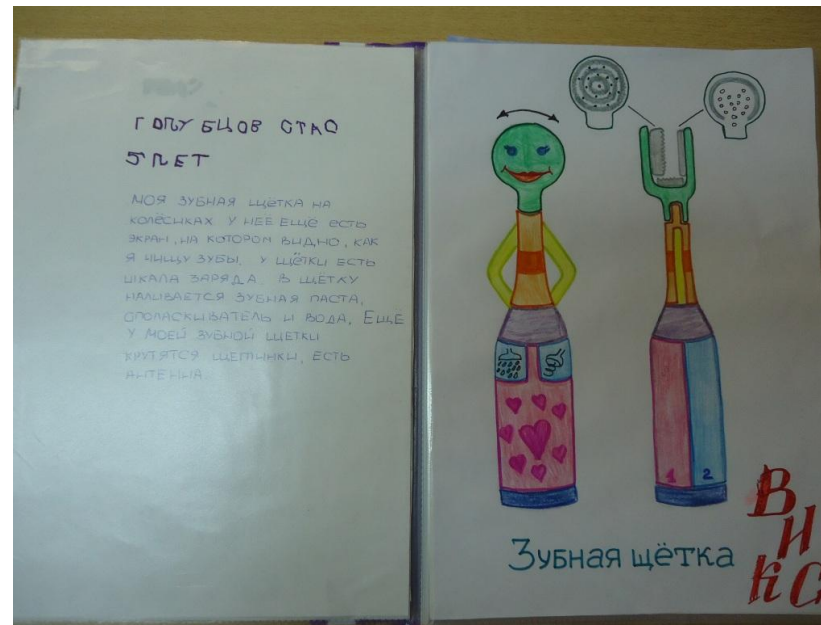 ГОЛУБЦОВ СТАС
5 ЛЕТ
МОЯ ЗУБНАЯ ЩЁТКА НА
КОЛЁСИКАХ. У НЕЁ ЕЩЁ ЕСТЬ
ЭКРАН, НА КОТОРОМ ВИДНО, КАК
Я ЧИЩУ ЗУБЫ. У ЩЁТКИ ЕСТЬ
ШКАЛА ЗАРЯДА. В ЩЕТКУ
НАЛИВАЕТСЯ ЗУБНАЯ ПАСТА,
ОПОЛАСКИВАТЕЛЬ И ВОДА. ЕЩЕ
У МОЕЙ ЗУБНОЙ ЩЕТКИ
КРУТЯТСЯ ЩЕТИНКИ, ЕСТЬ
АНТЕННА.
1 2
Зубная щётка
В
И
КС